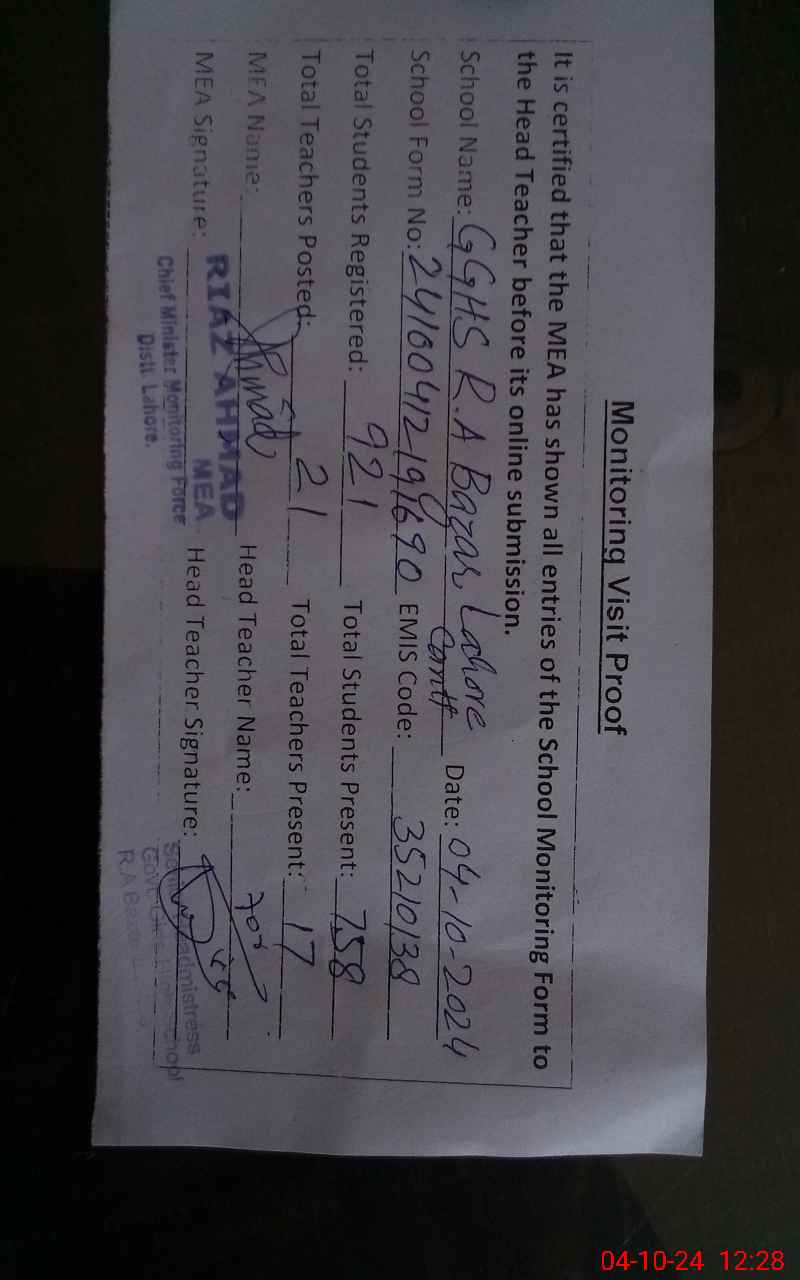 Monitoring Visit Proof
It is certified that the MEA has shown all entries of the School Monitoring Form to
the Head Teacher before its online submission.
School Name: GGHS R.A Bazar Lahore Cantt Date: 04-10-2024
School Form No: 24100412191690 EMIS Code: 35210138
Total Students Registered: 921 Total Students Present: 758
Total Teachers Posted: 21 Total Teachers Present: 17
MEA Name: Ahmad Head Teacher Name: for
MEA Signature: Head Teacher Signature:
RIAZ AHMAD
MEA
Chief Minister Monitoring Force
Distt. Lahore.
Senior Headmistress
Govt. Girls High School
R.A Bazar
04-10-24 12:28